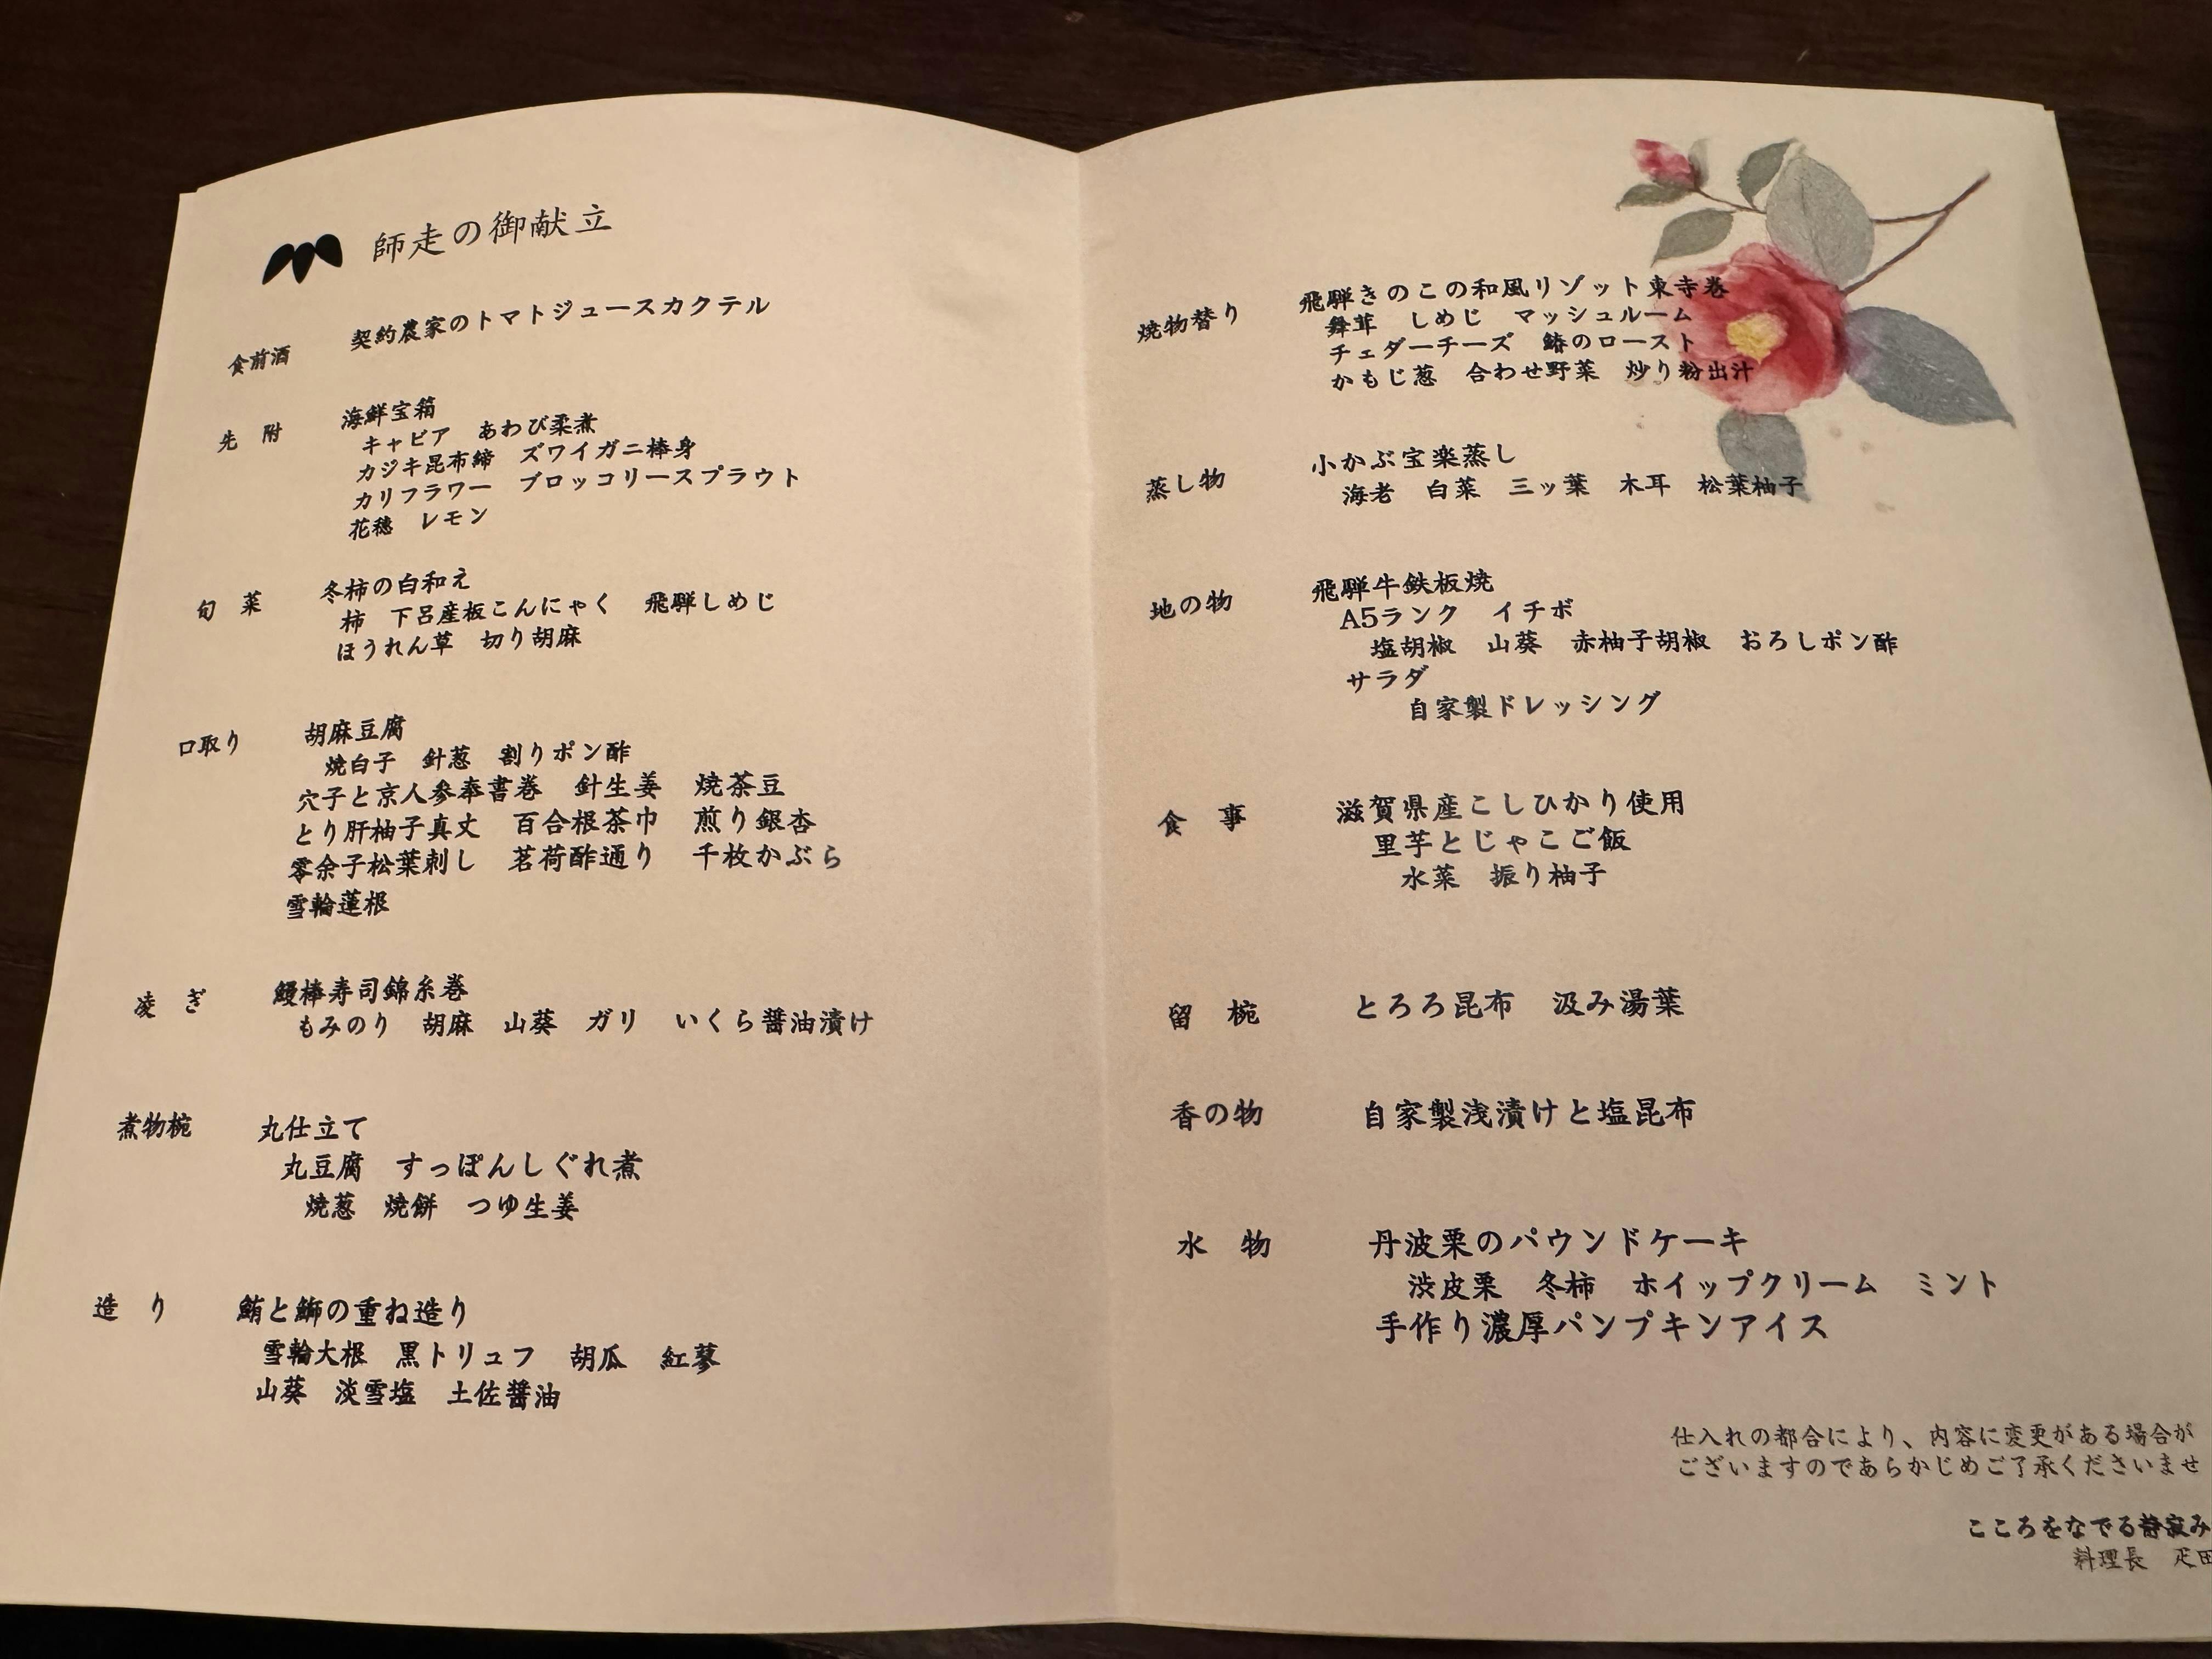 師走の御献立
食前酒　契約農家のトマトジュースカクテル
先　附　海鮮宝箱
キャビア　あわび柔煮
カジキ昆布締　ズワイガニ棒身
カリフラワー　ブロッコリースプラウト
花穂　レモン
旬　菜　冬柿の白和え
柿　下呂産板こんにゃく　飛騨しめじ
ほうれん草　切り胡麻
口取り　胡麻豆腐
焼白子　針葱　割りポン酢
穴子と京人参奉書巻　針生姜　焼茶豆
とり肝柚子真丈　百合根茶巾　煎り銀杏
零余子松葉刺し　茗荷酢通り　千枚かぶら
雪輪蓮根
凌　ぎ　鰻棒寿司錦糸巻
もみのり　胡麻　山葵　ガリ　いくら醤油漬け
煮物椀　丸仕立て
丸豆腐　すっぽんしぐれ煮
焼葱　焼餅　つゆ生姜
造　り　鮪と鰤の重ね造り
雪輪大根　黒トリュフ　胡瓜　紅蓼
山葵　淡雪塩　土佐醤油
焼物替り　飛騨きのこの和風リゾット東寺巻
舞茸　しめじ　マッシュルーム
チェダーチーズ　鰆のロースト
かもじ葱　合わせ野菜　炒り粉出汁
蒸し物　小かぶ宝楽蒸し
海老　白菜　三ッ葉　木耳　松葉柚子
地の物　飛騨牛鉄板焼
A5ランク　イチボ
塩胡椒　山葵　赤柚子胡椒　おろしポン酢
サラダ
自家製ドレッシング
食　事　滋賀県産こしひかり使用
里芋とじゃこご飯
水菜　振り柚子
留　椀　とろろ昆布　汲み湯葉
香の物　自家製浅漬けと塩昆布
水　物　丹波栗のパウンドケーキ
渋皮栗　冬柿　ホイップクリーム　ミント
手作り濃厚パンプキンアイス
仕入れの都合により、内容に変更がある場合が
ございますのであらかじめご了承くださいませ
こころをなでる静寂み
料理長　疋田